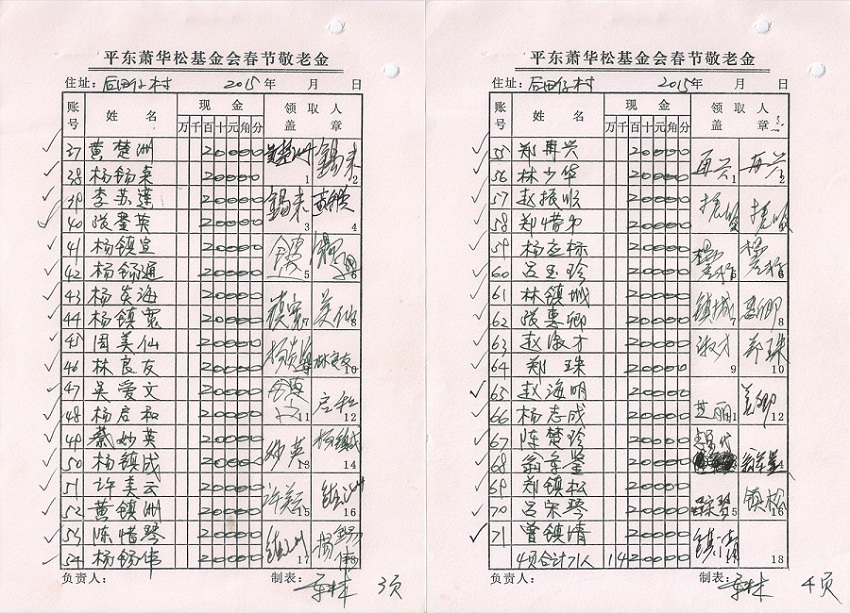 平东萧华松基金会春节敬老金
住址：后田仔村 2015年 月 日
账号 姓名 现金 领取人
万千百十元角分 盖章
37 黄楚洲 20000 1 锡来 2
38 杨锡来 20000
39 李苏莲 20000 锡来 3 4
40 张蛋英 20000
41 杨镇宣 20000 5
42 杨锡通 20000
43 杨炎海 20000 镇宽 7 美仙 8
44 杨镇宽 20000
45 周美仙 20000 林良友 10
46 林良友 20000
47 吴爱文 20000 11 启和 12
48 杨启和 20000
49 蔡妙英 20000 妙英 13 杨镇成 14
50 杨镇成 20000
51 许美云 20000 许美云 15 16
52 黄镇洲 20000
53 陈惜琴 20000 17 杨锡伟
54 杨锡伟 20000
负责人： 制表： 3页
平东萧华松基金会春节敬老金
住址：后田仔村 2015年 月 日
账号 姓名 现金 领取人
万千百十元角分 盖章
55 郑再兴 20000 再兴 1 再兴 2
56 林少华 20000
57 赵振顺 20000 振顺 振顺
58 郑惜弟 20000
59 杨立标 20000
60 吕玉珍 20000
61 林镇城 20000 镇城 7 惠卿 8
62 张惠卿 20000
63 赵淑才 20000 淑才 9 郑珠 10
64 郑珠 20000
65 赵海明 20000 芝丽 11 12
66 杨志成 20000
67 陈楚珍 20000
68 翁岳鉴 20000
69 郑镇松 20000 15 镇松
70 吕宋琴 20000
71 曾镇清 20000 镇清 18
4页合计71人 1420000
负责人： 制表： 4页